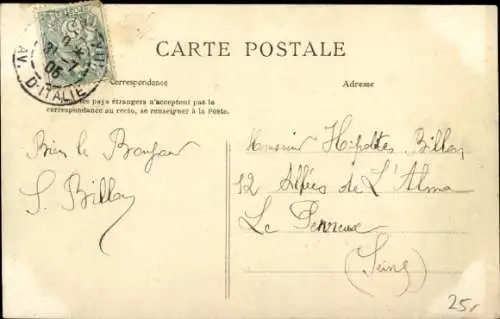 CARTE POSTALE
Correspondance
Adresse
les pays étrangers n'acceptent pas la
correspondance au recto, se renseigner à la Poste.
AV. D'ITALIE
Bien le Bonjour
S. Billon
Monsieur Hipolites Billon
12 Allées de L'Alma
Le Perreux
(Seine)
25,